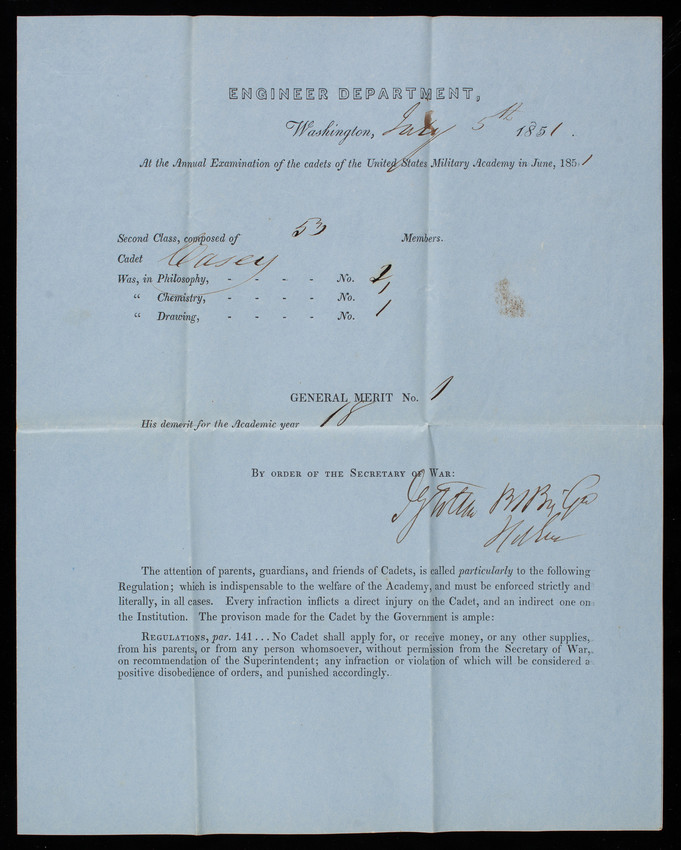 ENGINEER DEPARTMENT,
Washington, July 5th 1851.
At the Annual Examination of the cadets of the United States Military Academy in June, 1851
Second Class, composed of 53 Members.
Cadet Casey
Was, in Philosophy, - - - - No. 2
“ Chemistry, - - - - No. 1
“ Drawing, - - - - No. 1
GENERAL MERIT No. 1
His demerit for the Academic year 18
BY ORDER OF THE SECRETARY OF WAR:
The attention of parents, guardians, and friends of Cadets, is called particularly to the following
Regulation; which is indispensable to the welfare of the Academy, and must be enforced strictly and
literally, in all cases. Every infraction inflicts a direct injury on the Cadet, and an indirect one on
the Institution. The provison made for the Cadet by the Government is ample:
REGULATIONS, par. 141 . . . No Cadet shall apply for, or receive money, or any other supplies,
from his parents, or from any person whomsoever, without permission from the Secretary of War,
on recommendation of the Superintendent; any infraction or violation of which will be considered a
positive disobedience of orders, and punished accordingly.